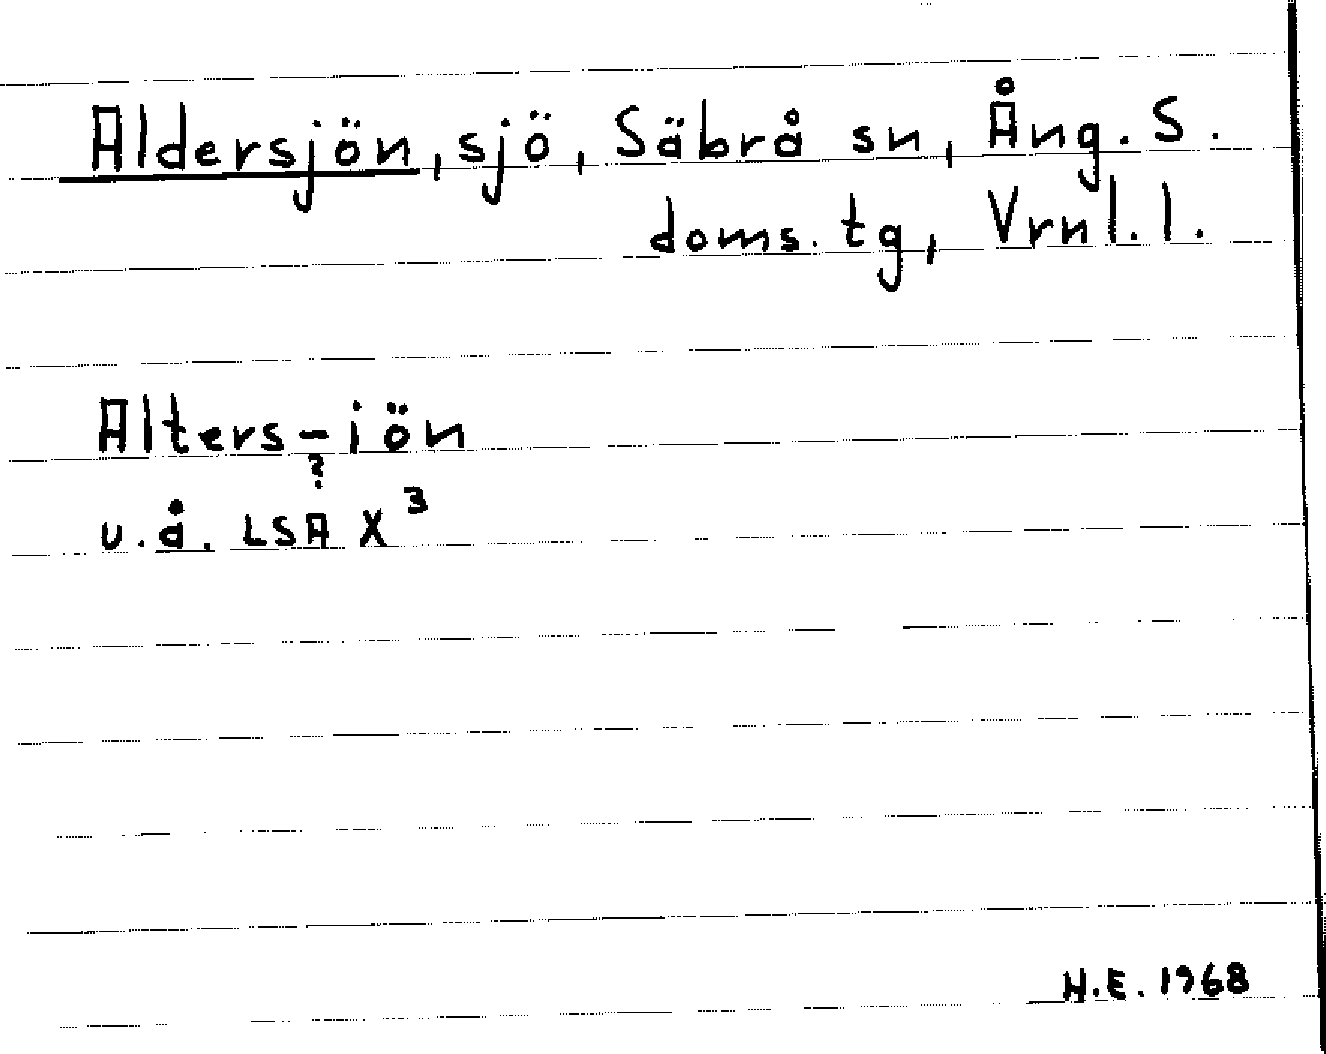 Aldersjön, sjö, Säbrå sn, Ång. S.
doms. tg, Vrnl. l.
Alters-iön
?
u. å. LSA X³
H.E. 1968